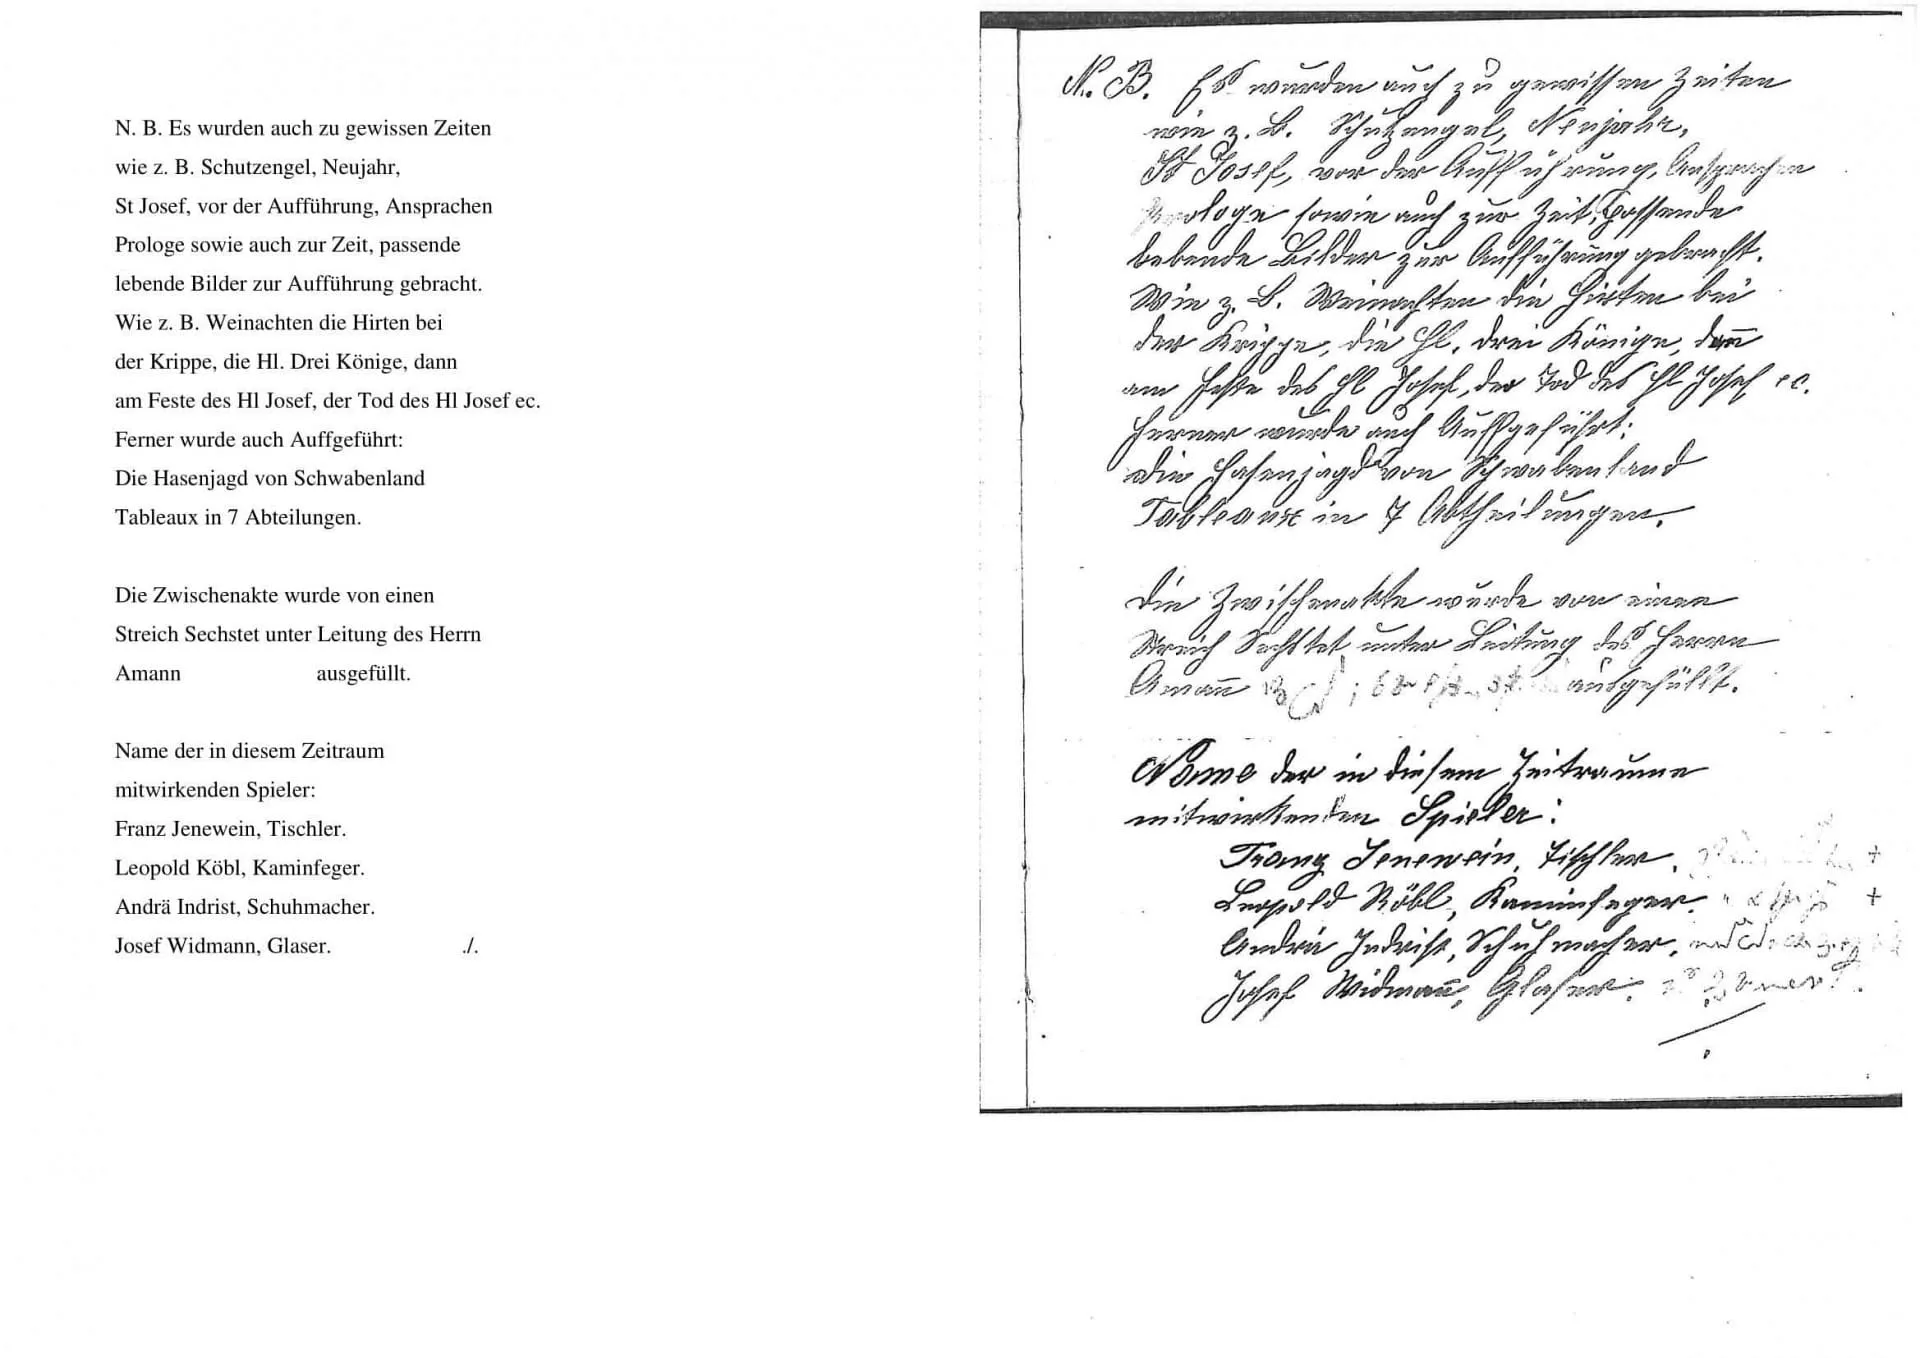 N. B. Es wurden auch zu gewissen Zeiten
wie z. B. Schutzengel, Neujahr,
St Josef, vor der Aufführung, Ansprachen
Prologe sowie auch zur Zeit, passende
lebende Bilder zur Aufführung gebracht.
Wie z. B. Weinachten die Hirten bei
der Krippe, die Hl. Drei Könige, dann
am Feste des Hl Josef, der Tod des Hl Josef ec.
Ferner wurde auch Auffgeführt:
Die Hasenjagd von Schwabenland
Tableaux in 7 Abteilungen.
Die Zwischenakte wurde von einen
Streich Sechstet unter Leitung des Herrn
Amann ausgefüllt.
Name der in diesem Zeitraum
mitwirkenden Spieler:
Franz Jenewein, Tischler.
Leopold Köbl, Kaminfeger.
Andrä Indrist, Schuhmacher.
Josef Widmann, Glaser. ./.
N. B. Es wurden auch zu gewissen Zeiten
wie z. B. Schutzengel, Neujahr,
St Josef, vor der Aufführung, Ansprachen
Prologe sowie auch zur Zeit, passende
lebende Bilder zur Aufführung gebracht.
Wie z. B. Weinachten die Hirten bei
der Krippe, die Hl. drei Könige, dan̄
am Feste des Hl Josef, der Tod des Hl Josef ec.
Ferner wurde auch Auffgeführt:
Die Hasenjagd von Schwabenland
Tableaux in 7 Abtheilungen.
Die Zwischenakte wurde von einen
Streich Sechstet unter Leitung des Herrn
Aman̄ ausgefüllt.
Name der in diesem Zeitraume
mitwirkenden Spieler:
Franz Jenewein, Tischler. +
Leopold Köbl, Kaminfeger. +
Andrä Indrist, Schuhmacher.
Josef Widman̄, Glaser.
./.